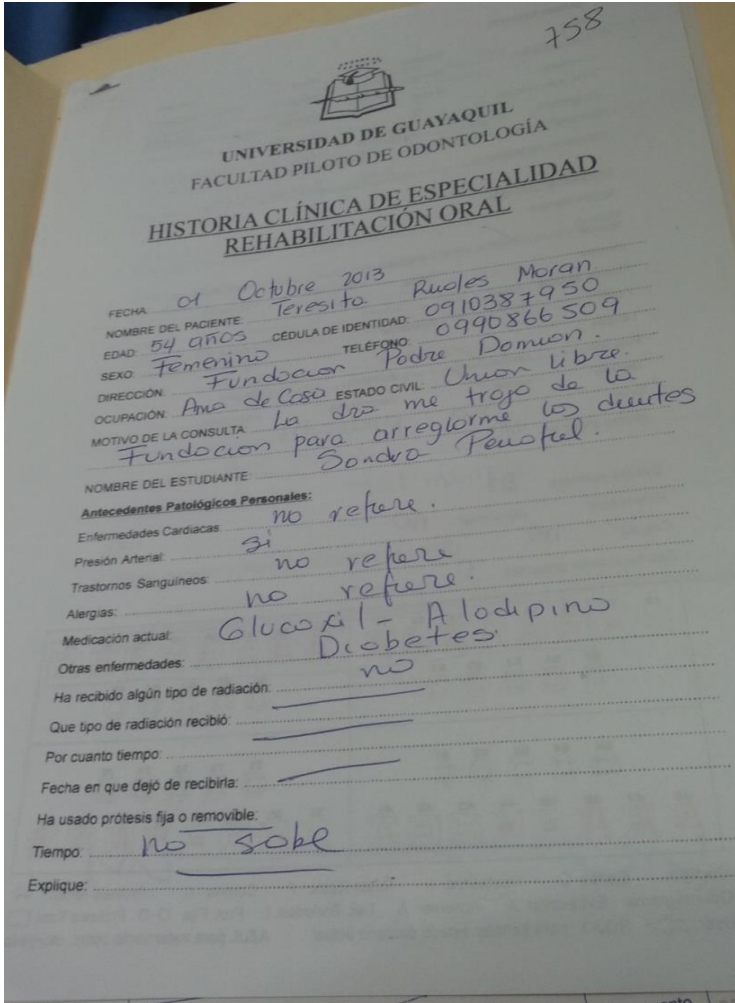 758
UNIVERSIDAD DE GUAYAQUIL
FACULTAD PILOTO DE ODONTOLOGÍA
HISTORIA CLÍNICA DE ESPECIALIDAD
REHABILITACIÓN ORAL
FECHA 01 Octubre 2013
NOMBRE DEL PACIENTE: Teresita Ruales Moran
EDAD: 54 años CÉDULA DE IDENTIDAD: 0910387950
SEXO: Femenino TELÉFONO: 0990866509
DIRECCIÓN: Fundacion Padre Damian.
OCUPACIÓN: Ama de Casa ESTADO CIVIL: Union libre.
MOTIVO DE LA CONSULTA: La dra me trajo de la
Fundacion para arreglarme los dientes
NOMBRE DEL ESTUDIANTE: Sandra
Antecedentes Patológicos Personales:
Enfermedades Cardiacas: no refiere.
Presión Arterial: si
Trastornos Sanguíneos: no refiere
Alergias: no refiere.
Medicación actual: Glucoxil - Alodipino
Otras enfermedades: Diabetes.
Ha recibido algún tipo de radiación: no
Que tipo de radiación recibió:
Por cuanto tiempo:
Fecha en que dejó de recibirla:
Ha usado prótesis fija o removible:
Tiempo: no sabe
Explique: